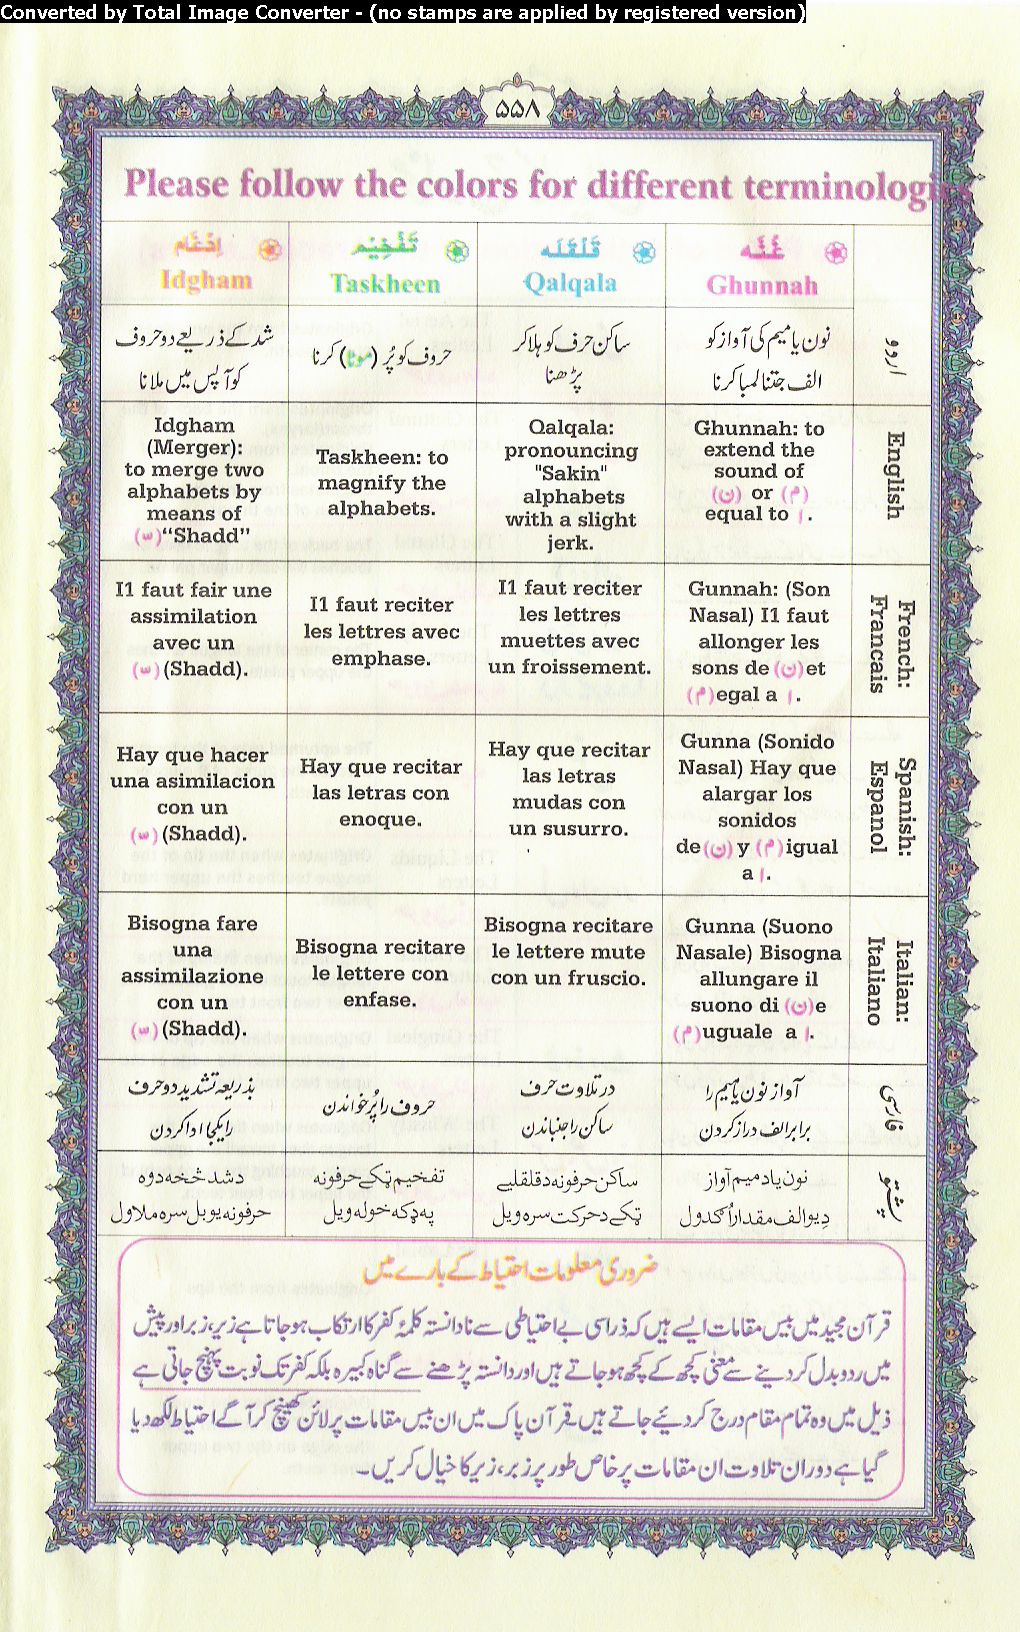 Converted by Total Image Converter - (no stamps are applied by registered version)
۵۵۸
Please follow the colors for different terminologies
اِدْغَام
Idgham
تَفْخِيْم
Taskheen
قَلْقَلَه
Qalqala
غُنَّه
Ghunnah
شد کے ذریعے دو حروف
کو آپس میں ملانا
حروف کو پُر (موٹا) کرنا
ساکن حرف کو ہلا کر
پڑھنا
نون یا میم کی آواز کو
الف جتنا لمبا کرنا
اردو
Idgham
(Merger):
to merge two
alphabets by
means of
(ــّ) “Shadd”
Taskheen: to
magnify the
alphabets.
Qalqala:
pronouncing
"Sakin"
alphabets
with a slight
jerk.
Ghunnah: to
extend the
sound of
(ن) or (م)
equal to ا.
English
I1 faut fair une
assimilation
avec un
(ــّ) (Shadd).
I1 faut reciter
les lettres avec
emphase.
I1 faut reciter
les lettres
muettes avec
un froissement.
Gunnah: (Son
Nasal) I1 faut
allonger les
sons de (ن) et
(م) egal a ا.
French:
Francais
Hay que hacer
una asimilacion
con un
(ــّ) (Shadd).
Hay que recitar
las letras con
enoque.
Hay que recitar
las letras
mudas con
un susurro.
Gunna (Sonido
Nasal) Hay que
alargar los
sonidos
de (ن) y (م) igual
a ا.
Spanish:
Espanol
Bisogna fare
una
assimilazione
con un
(ــّ) (Shadd).
Bisogna recitare
le lettere con
enfase.
Bisogna recitare
le lettere mute
con un fruscio.
Gunna (Suono
Nasale) Bisogna
allungare il
suono di (ن) e
(م) uguale a ا.
Italian:
Italiano
بذریعہ تشدید دو حرف
را یکجا ادا کردن
حروف را پُر خواندن
در تلاوت حرف
ساکن را جنباندن
آواز نون یا میم را
برابر الف دراز کردن
فارسی
د شد څخه دوه
حرفونه یو بل سره ملاول
تفخیم ټکے حرفونه
په ډکه خوله ویل
ساکن حرفونه د قلقلیے
ټکے د حرکت سره ویل
نون یا د میم آواز
د یو الف مقدار اُګدول
پښتو
ضروری معلومات احتیاط کے بارے میں
قرآن مجید میں بیس مقامات ایسے ہیں کہ ذرا سی بے احتیاطی سے نادانستہ کلمۂ کفر کا ارتکاب ہو جاتا ہے زیر، زبر اور پیش
میں ردوبدل کر دینے سے معنٰی کچھ کے کچھ ہو جاتے ہیں اور دانستہ پڑھنے سے گناہ کبیرہ بلکہ کفر تک نوبت پہنچ جاتی ہے
ذیل میں وہ تمام مقام درج کر دئیے جاتے ہیں۔ قرآن پاک میں ان بیس مقامات پر لائن کھینچ کر آگے احتیاط لکھ دیا
گیا ہے دوران تلاوت ان مقامات پر خاص طور پر زبر، زیر کا خیال کریں۔